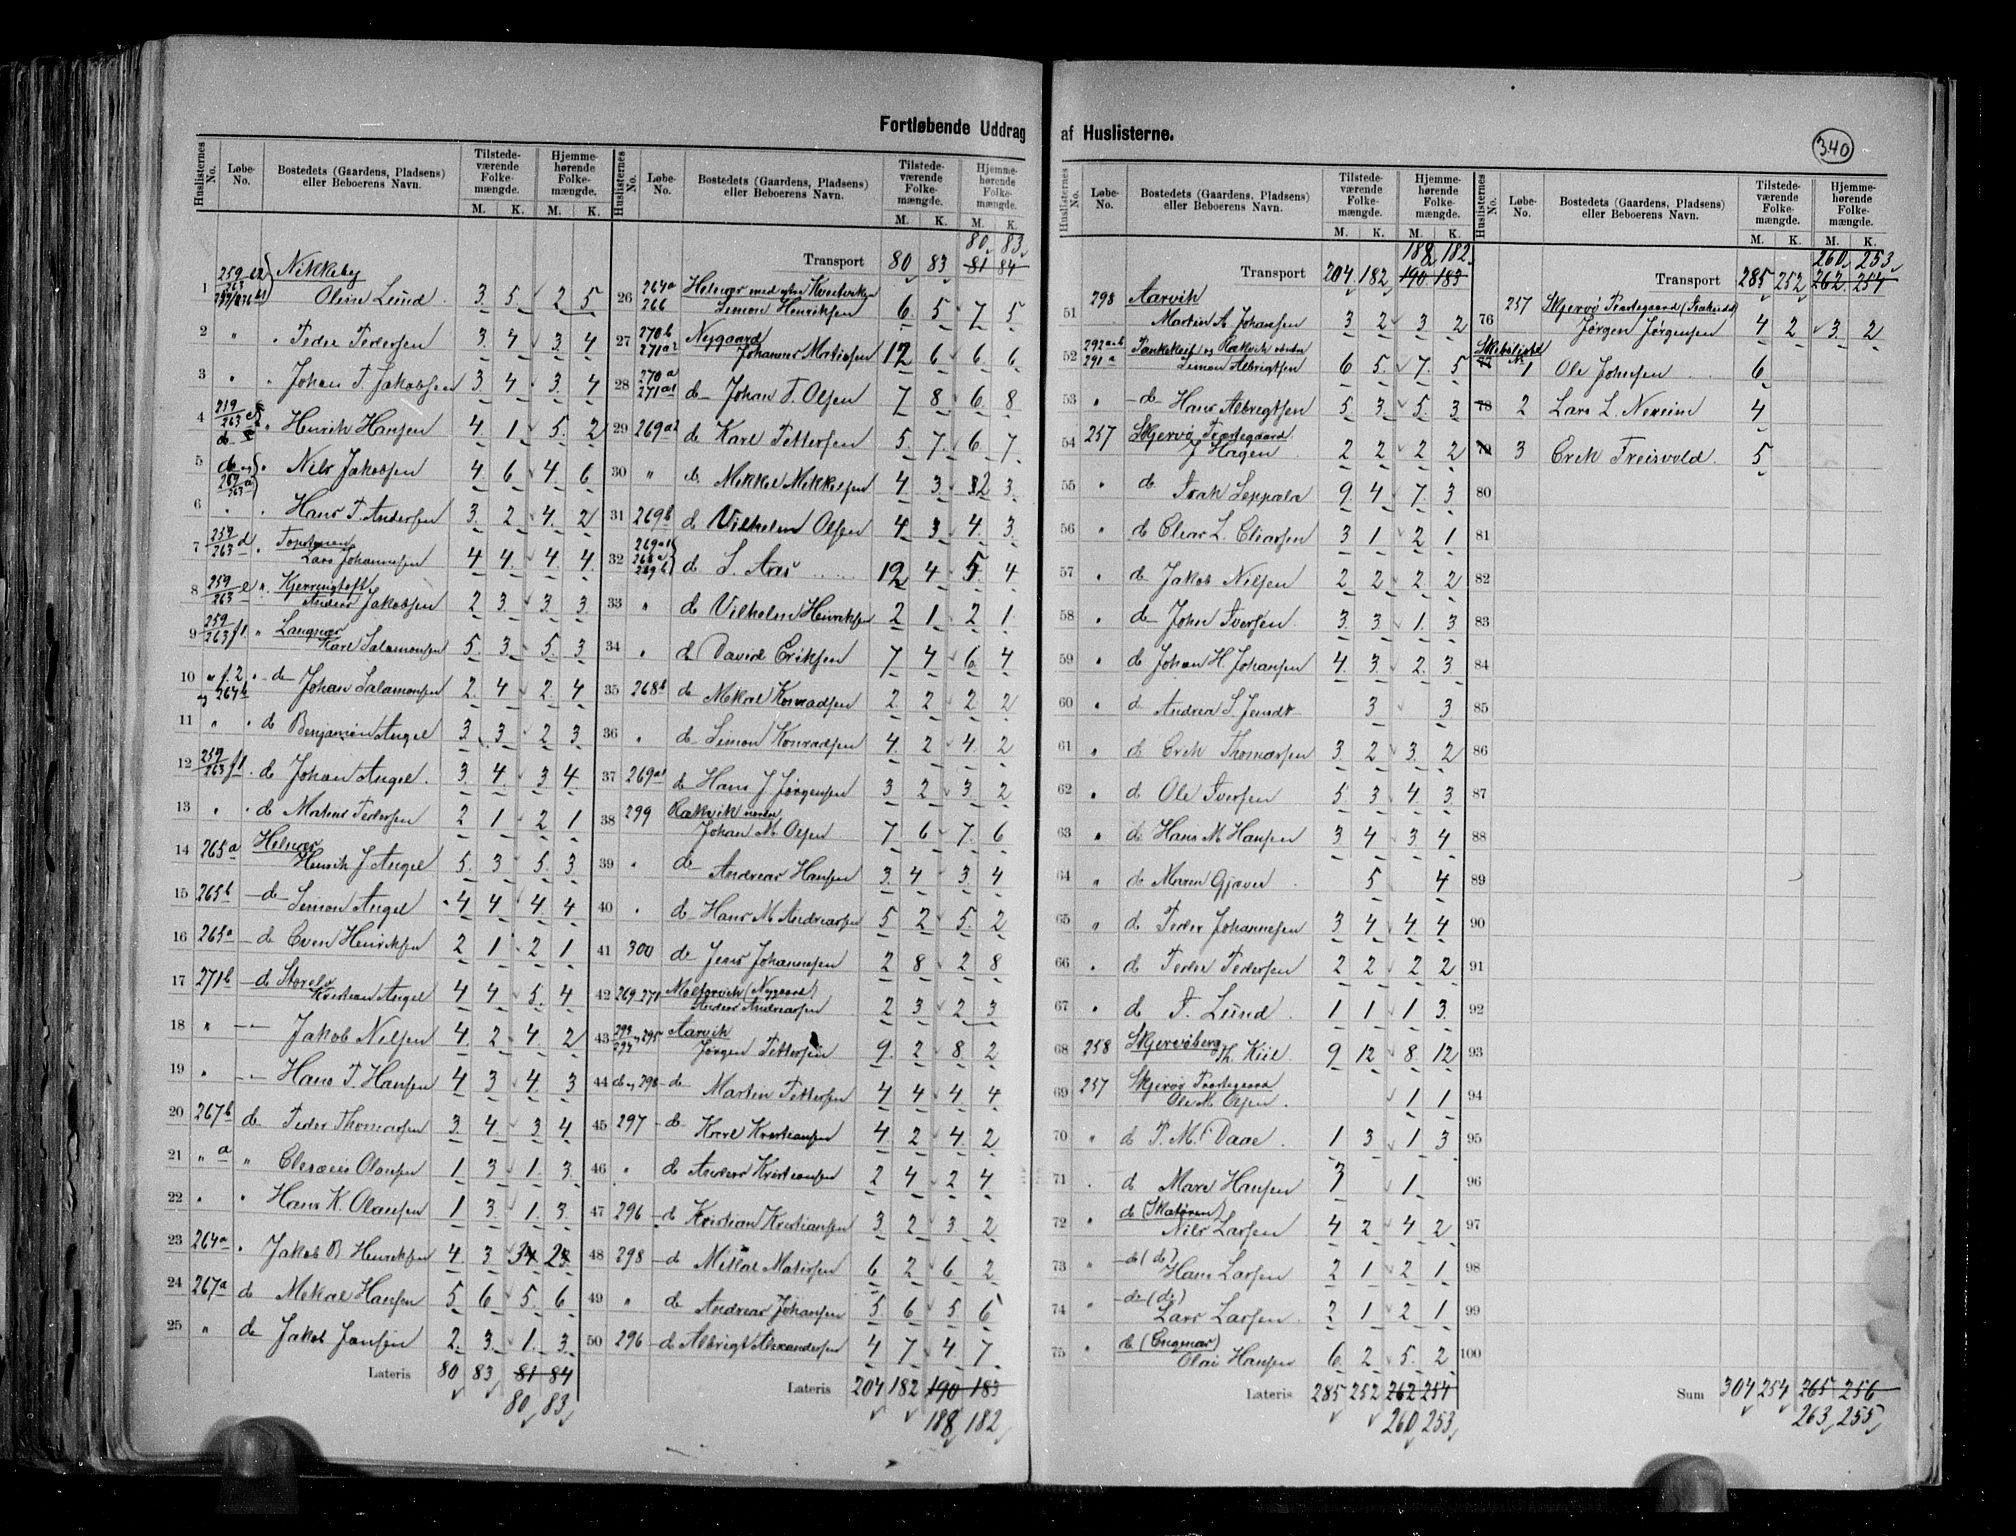 Fortløbende Uddrag af Huslisterne.
340
Huslisternes No. Løbe-No. Bostedets (Gaardens, Pladsens) eller Beboerens Navn. Tilstedeværende Folkemængde. M. K. Hjemmehørende Folkemængde. M. K.
1 259/263 Nikkeby
Olein Lund 3 5 2 5
2 " " Peder Pedersen 3 4 3 4
3 " " Johan P. Jakobsen 3 4 3 4
4 259/263 " Henrik Hansen 4 1 5 2
5 do og 259/263 a " Nils Jakobsen 4 6 4 6
6 " " Hans P. Andersen 3 2 4 2
7 259/263 d " Lars Johannesen 4 4 4 4
8 259/263 e " Kjerringtoft
Anders Jakobsen 2 3 3 3
9 259/263 f1 " Langnær
Karl Salamonsen 5 3 5 3
10 " f.2 og 264b " do Johan Salamonsen 2 4 2 4
11 " " do Benjamin Angel 3 3 2 3
12 259/263 f1 do Johan Angel 3 4 3 4
13 " " do Martens Pedersen 2 1 2 1
14 265a Helnær
Henrik J. Angel 5 3 5 3
15 265b do Simon Angel 4 4 4 4
16 265a do Even Henriksen 2 1 2 1
17 271b do Storelv
Kristian Angel 4 4 5 4
18 " " Jakob Nilsen 4 2 4 2
19 " " Hans P. Hansen 4 3 4 3
20 267b do Peder Thomassen 3 4 3 4
21 " a " Olausen 1 3 1 3
22 " " Hans K. Olausen 1 3 1 3
23 264a " Jakob B. Henriksen 4 3
24 267a do Mikal Hansen 5 6 5 6
25 " do Jakob Jansen 2 3 1 3
Lateris 80 83 81 84
80 83
Huslisternes No. Løbe-No. Bostedets (Gaardens, Pladsens) eller Beboerens Navn. Tilstedeværende Folkemængde. M. K. Hjemmehørende Folkemængde. M. K.
80 83
Transport 80 83 81 84
26 264a 266 Helnær med
Simon Henriksen 6 5 7 5
27 270b 271a2 Nygaard
Johannes Matisen 12 6 6 6
28 270a 271a1 do Johan P. Olsen 7 8 6 8
29 269a2 do Karl Pettersen 5 7 6 7
30 " do Mikkel Mikkelsen 4 3 2 3
31 269b do Vilhelm Olsen 4 3 4 3
32 269a1 268a 269b do S. Aas 12 4 5 4
33 " do Vilhelm Henriksen 2 1 2 1
34 " do David Eriksen 7 4 6 4
35 268b do Mikal Konradsen 2 2 2 2
36 " do Simon Konradsen 4 2 4 2
37 269a1 do Hans J. Jørgensen 3 2 3 2
38 299 Rakvik nordre
Johan M. Olsen 7 6 7 6
39 " do Andreas Hansen 3 4 3 4
40 " do Hans M. Andreassen 5 2 5 2
41 300 do Jens Johannesen 2 8 2 8
42 269-271 (Nygaard)
Anders Andreassen 2 3 2 3
43 295 Aarvik
Jørgen Pettersen 9 2 8 2
44 do og 298 do Martin Pettersen 4 4 4 4
45 297 do Karl Kristiansen 4 2 4 2
46 " do Anders Kristiansen 2 4 2 4
47 296 do Kristian Kristiansen 3 2 3 2
48 298 do Mikal Matisen 6 2 6 2
49 " do Andreas Johansen 5 6 5 6
50 296 do Albrigt Alexandersen 4 7 4 7
Lateris 204 182 190 183
188 182
Huslisternes No. Løbe-No. Bostedets (Gaardens, Pladsens) eller Beboerens Navn. Tilstedeværende Folkemængde. M. K. Hjemmehørende Folkemængde. M. K.
188 182
Transport 204 182 190 183
51 298 Aarvik
Martin A. Johansen 3 2 3 2
52 292a+b 291a og Rakvik søndre
Simon Albrigtsen 6 5 7 5
53 " do Hans Albrigtsen 5 3 5 3
54 257 Skjervø Præstegaard
J. Hagen 2 2 2 2
55 " do Isak Seppala 9 4 7 3
56 " do Elias L. Eliassen 3 1 2 1
57 " do Jakob Nilsen 2 2 2 2
58 " do John Iversen 3 3 1 3
59 " do Johan H. Johansen 4 3 2 3
60 " do Andrea S. Jensdt 3 3
61 " do Erik Thomassen 3 2 3 2
62 " do Ole Iversen 5 3 4 3
63 " do Hans M. Hansen 3 4 3 4
64 " do Maren Gjæver 5 4
65 " do Peder Johannesen 3 4 4 4
66 " do Peder Pedersen 2 2 2 2
67 " do P. Lund 1 1 1 3
68 258 Skjervøberg
Th. Kiil 9 12 8 12
69 257 Skjervø Præstegaard
Ole M. Olsen 1 1
70 " do P. M. Daae 1 3 1 3
71 " do Mari Hansen 1
72 " do (Skatøren)
Nils Larsen 4 2 4 2
73 " do (do)
Hans Larsen 2 1 2 1
74 " do (do)
Lars Larsen 2 1 2 1
75 " do (Engmar)
Olai Hansen 6 2 5 2
Lateris 285 252 262 254
260 253
Huslisternes No. Løbe-No. Bostedets (Gaardens, Pladsens) eller Beboerens Navn. Tilstedeværende Folkemængde. M. K. Hjemmehørende Folkemængde. M. K.
260 253
Transport 285 252 262 254
76 257 Skjervø Præstegaard
Jørgen Jørgensen 4 2 3 2
Skibsliste
77 1 Ole Johnsen 6
78 2 Lars L. 4
79 3 Erik Treisvold 5
80
81
82
83
84
85
86
87
88
89
90
91
92
93
94
95
96
97
98
99
100
Sum 304 254 265 256
263 255